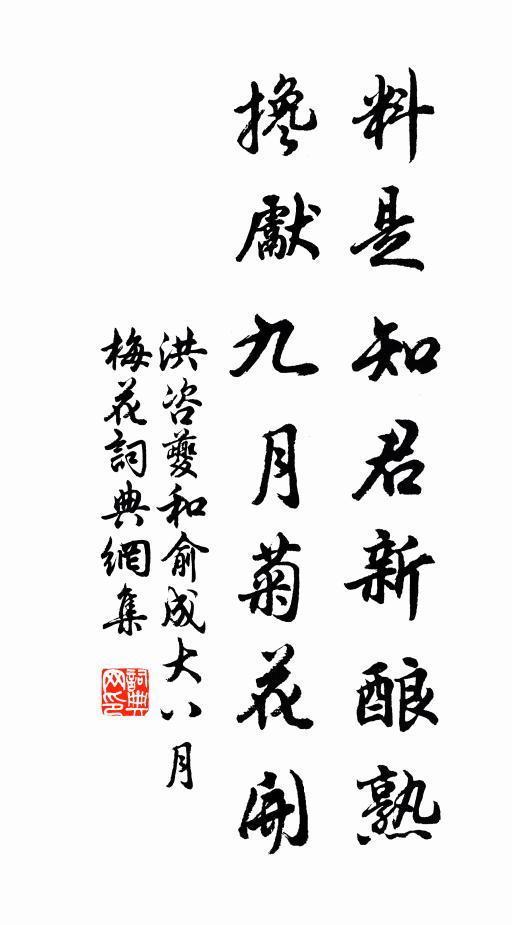 料是知君新酿熟
搀獻九月菊花開
洪咨夔和俞成大八月
梅花詞典網集
詞典网印